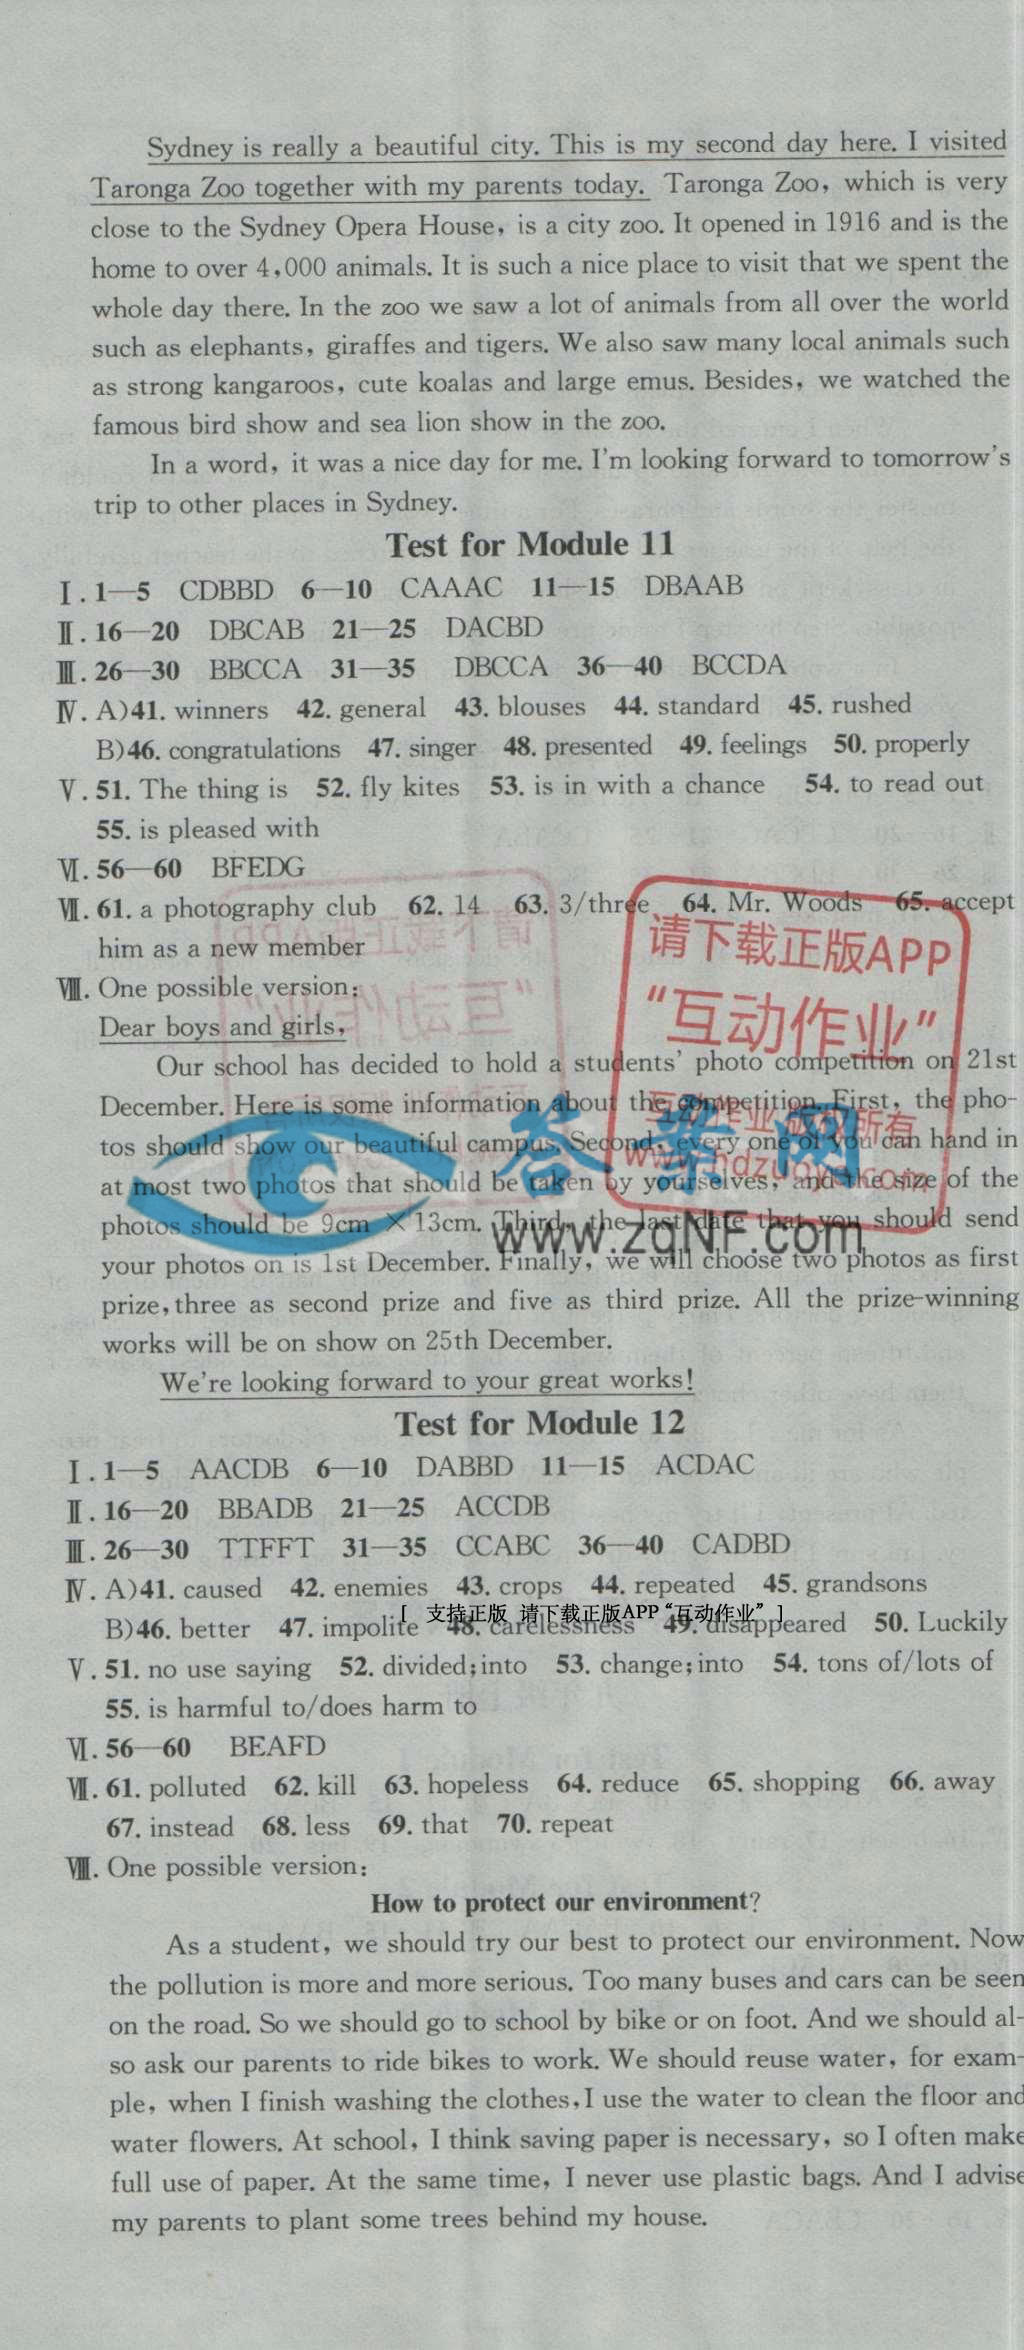 Sydney is really a beautiful city. This is my second day here. I visited
Taronga Zoo together with my parents today. Taronga Zoo, which is very
close to the Sydney Opera House, is a city zoo. It opened in 1916 and is the
home to over 4,000 animals. It is such a nice place to visit that we spent the
whole day there. In the zoo we saw a lot of animals from all over the world
such as elephants, giraffes and tigers. We also saw many local animals such
as strong kangaroos, cute koalas and large emus. Besides, we watched the
famous bird show and sea lion show in the zoo.
In a word, it was a nice day for me. I'm looking forward to tomorrow's
trip to other places in Sydney.
Test for Module 11
Ⅰ. 1—5 CDBBD 6—10 CAAAC 11—15 DBAAB
Ⅱ. 16—20 DBCAB 21—25 DACBD
Ⅲ. 26—30 BBCCA 31—35 DBCCA 36—40 BCCDA
Ⅳ. A)41. winners 42. general 43. blouses 44. standard 45. rushed
B)46. congratulations 47. singer 48. presented 49. feelings 50. properly
Ⅴ. 51. The thing is 52. fly kites 53. is in with a chance 54. to read out
55. is pleased with
Ⅵ. 56—60 BFEDG
Ⅶ. 61. a photography club 62. 14 63. 3/three 64. Mr. Woods 65. accept
him as a new member
Ⅷ. One possible version:
Dear boys and girls,
Our school has decided to hold a students' photo competition on 21st
December. Here is some information about the competition. First, the pho-
tos should show our beautiful campus. Second, every one of you can hand in
at most two photos that should be taken by yourselves, and the size of the
photos should be 9cm ×13cm. Third, the last date that you should send
your photos on is 1st December. Finally, we will choose two photos as first
prize, three as second prize and five as third prize. All the prize-winning
works will be on show on 25th December.
We're looking forward to your great works!
请下载正版APP
“互动作业”
互动作业 版权所有
答案网
www.zqNF.com
Test for Module 12
Ⅰ. 1—5 AACDB 6—10 DABBD 11—15 ACDAC
Ⅱ. 16—20 BBADB 21—25 ACCDB
Ⅲ. 26—30 TTFFT 31—35 CCABC 36—40 CADBD
Ⅳ. A)41. caused 42. enemies 43. crops 44. repeated 45. grandsons
[ 支持正版 请下载正版APP “互动作业” ]
B)46. better 47. impolite 48. carelessness 49. disappeared 50. Luckily
Ⅴ. 51. no use saying 52. divided;into 53. change;into 54. tons of/lots of
55. is harmful to/does harm to
Ⅵ. 56—60 BEAFD
Ⅶ. 61. polluted 62. kill 63. hopeless 64. reduce 65. shopping 66. away
67. instead 68. less 69. that 70. repeat
Ⅷ. One possible version:
How to protect our environment?
As a student, we should try our best to protect our environment. Now
the pollution is more and more serious. Too many buses and cars can be seen
on the road. So we should go to school by bike or on foot. And we should al-
so ask our parents to ride bikes to work. We should reuse water, for exam-
ple, when I finish washing the clothes, I use the water to clean the floor and
water flowers. At school, I think saving paper is necessary, so I often make
full use of paper. At the same time, I never use plastic bags. And I advise
my parents to plant some trees behind my house.